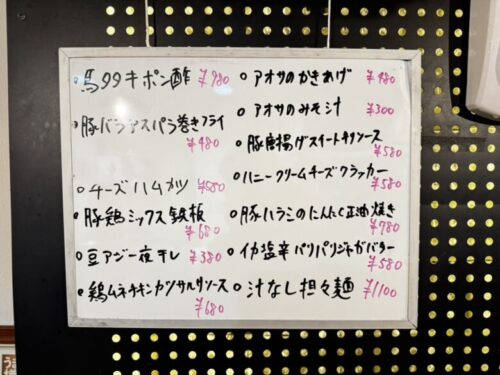 ・馬タタキポン酢 ¥980
・豚バラアスパラ巻きフライ
¥480
・チーズハムカツ ¥580
・豚鶏ミックス鉄板
¥680
・豆アジ一夜干し ¥380
・鶏ムネチキンカツサルサソース
¥680
・アオサのかきあげ ¥480
・アオサのみそ汁 ¥300
・豚唐揚げスイートチリソース
¥580
・ハニークリームチーズクラッカー
¥580
・豚ハラミのにんにく正油焼き
¥780
・イカ塩辛パリパリジャガバター
¥580
・汁なし担々麺 ¥1100